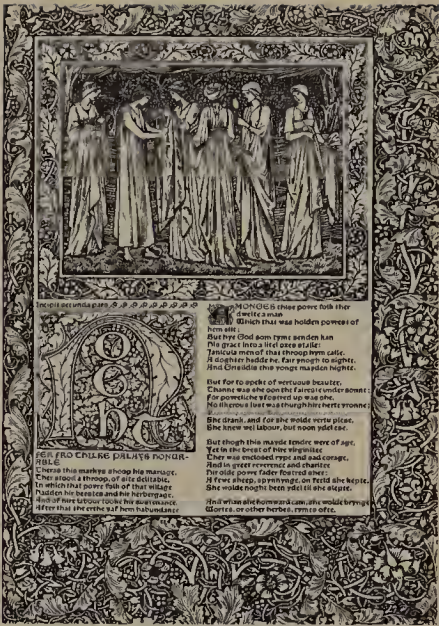 Incipit secunda pars
FER FRO THILKE PALAYS HONUR-
ABLE
Theras this markys shoop his mariage,
Ther stood a throop, of site delitable,
In which that povre folk of that village
Hadden hir bestes and hir herbergage,
And of hire labour tooke hir sustenance,
After that the erthe yaf hem habundance
AMONGES thise povre folk ther
dwelte a man
Which that was holden povrest of
hem alle;
But hye God som tyme senden kan
His grace into a litel oxes stalle:
Janicula men of that throop hym calle.
A doghter hadde he, fair ynogh to sighte,
And Grisildis this yonge mayden highte.
But for to speke of vertuous beautee,
Thanne was she oon the faireste under sonne;
For povreliche yfostred up was she,
No likerous lust was thurgh hire herte yronne;
She drank, and for she wolde vertu plese,
She knew wel labour, but noon ydel ese.
But thogh this mayde tendre were of age,
Yet in the brest of hire virginitee
Ther was enclosed rype and sad corage,
And in greet reverence and charitee
Hir olde povre fader fostred she:
A fewe sheep, spynnynge, on feeld she kepte,
She wolde noght been ydel til she slepte.
And whan she homward cam, she wolde brynge
Wortes, or other herbes, tymes ofte,